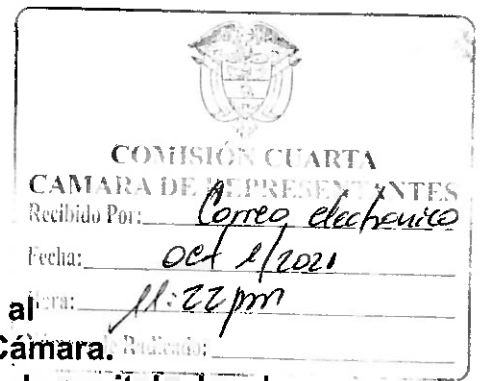 COMISIÓN CUARTA
CAMARA DE REPRESENTANTES
Recibido Por: Correo electronico
Fecha: oct 1/2021
Hora: 11:22 pm
al
Cámara. Radicado: